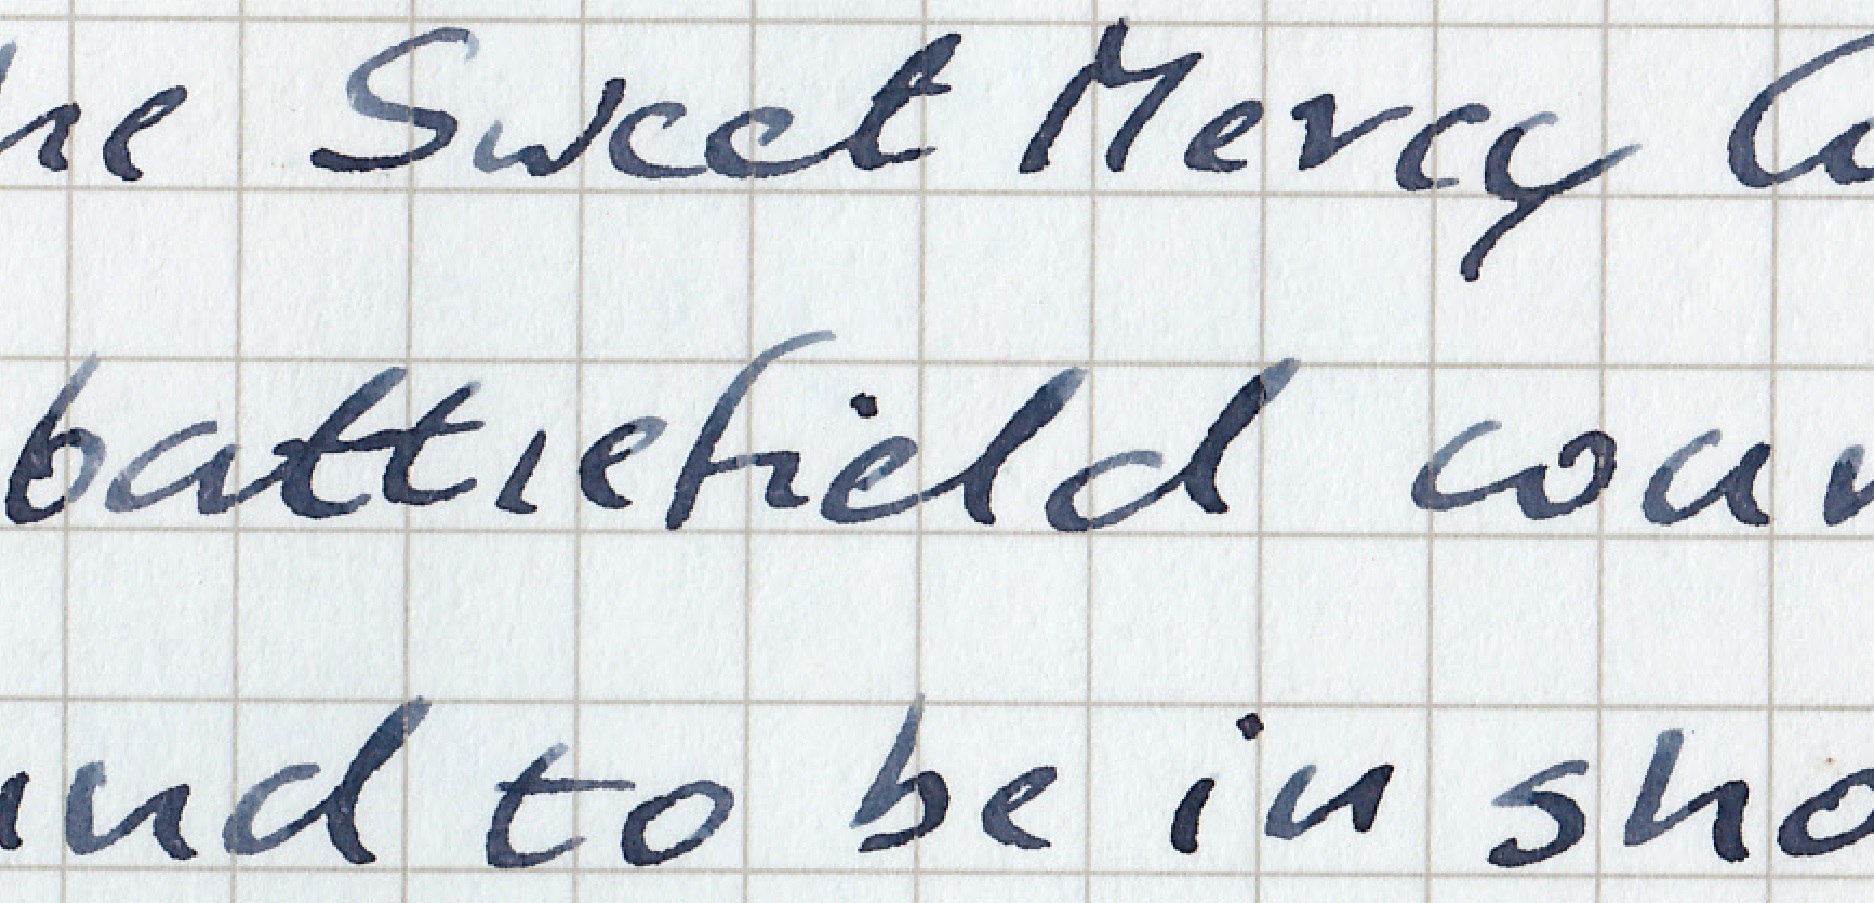 he Sweet Mercy Co
battlefield coun
und to be in sho